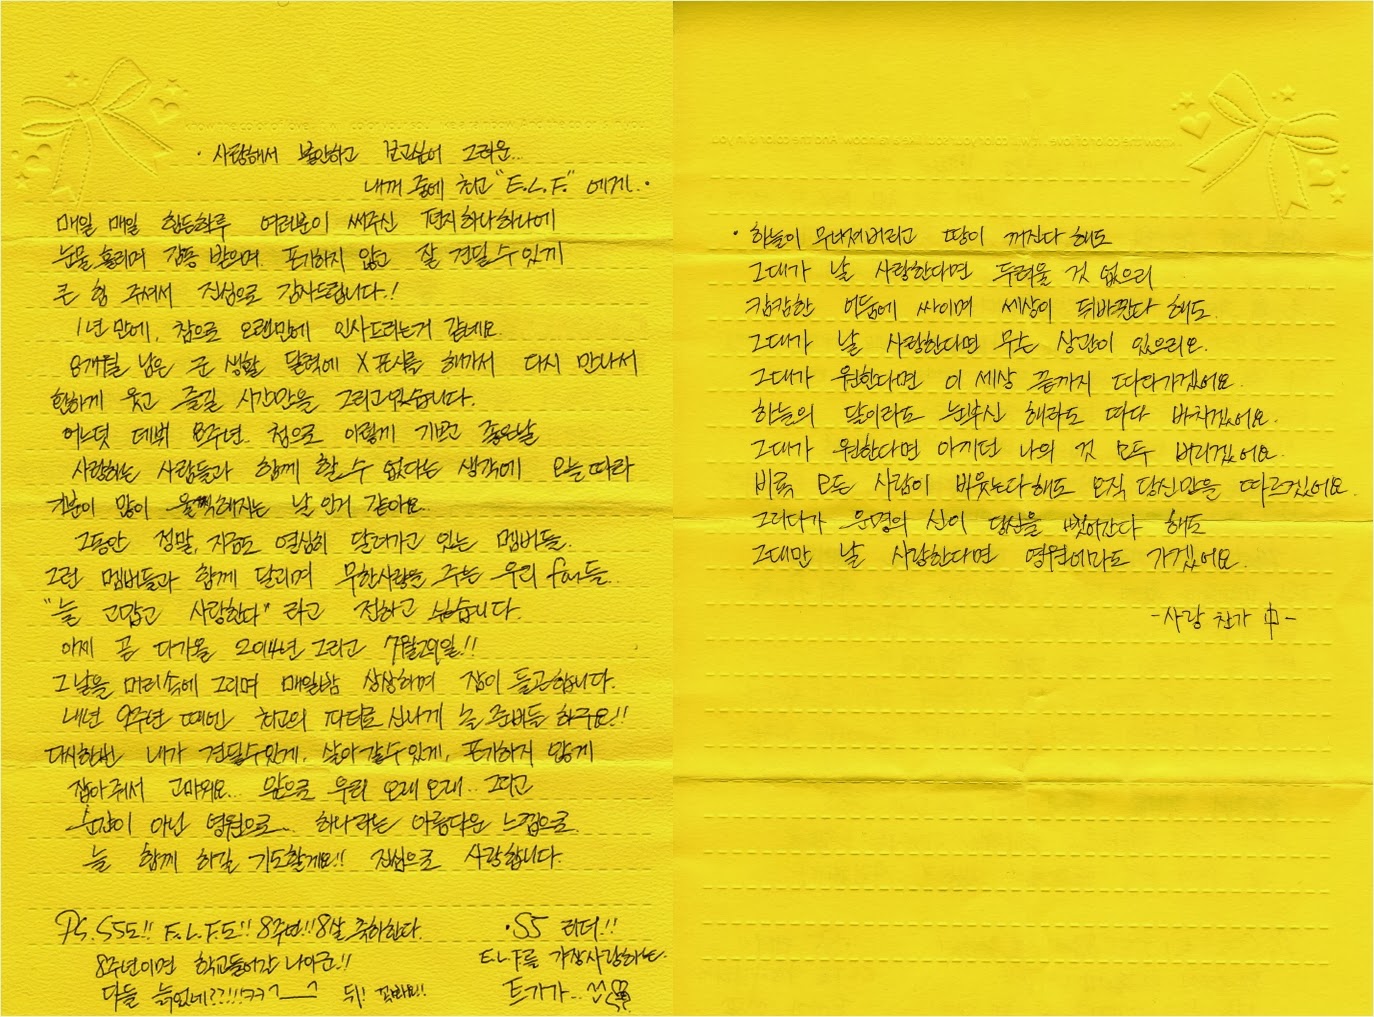 · 사랑해서 불안하고 보고싶어 그리운...
내꺼 중에 최고 "E.L.F." 에게..·
매일 매일 힘든하루 여러분이 써주신 편지하나하나에
눈물 흘리며 감동 받으며 포기하지 않고 잘 견딜 수 있게
큰 힘 주셔서 진심으로 감사드립니다.!
1년 만에, 참으로 오랜만에 인사드리는거 같네요.
8개월 남은 군 생활 달력에 X표시를 해가서 다시 만나서
환하게 웃고 즐길 시간만을 그리고있습니다.
어느덧 데뷔 8주년. 첨으로 이렇게 기쁘고 좋은날
사랑하는 사람들과 함께 할 수 없다는 생각에 오늘따라
기분이 많이 울쩍해지는 날 인거 같아요.
그동안 정말, 지금도 열심히 달려가고 있는 멤버들.
그런 멤버들과 함께 달리며 무한사랑을 주는 우리 fan들..
"늘 고맙고 사랑한다" 라고 전하고 싶습니다.
이제 곧 다가올 2014년 그리고 7월29일!!
그날을 머리속에 그리며 매일밤 상상하며 잠이 들곤합니다.
내년 9주년 때엔 최고의 파티로 신나게 놀 준비들 하구요!!
다시한번 내가 견딜수있게, 살아갈수있게, 포기하지 않게
잡아줘서 고마워요... 앞으로 우리 오래오래.. 그리고
순간이 아닌 영원으로... 하나라는 아름다운 느낌으로
늘 함께 하길 기도할게요!! 진심으로 사랑합니다.
PS. SS도!! E.L.F.도!! 8주년!! 8살 축하한다.
8주년이면 학교들어갈 나이군!!
다들 늙었네??!!!ㅋㅋ^__^ 뒤!
·SS 리더!!
E.L.F를 가장사랑하는.
트가가... ^^
· 하늘이 무너져버리고 땅이 꺼진다 해도
그대가 날 사랑한다면 두려울 것 없으리
캄캄한 어둠에 싸이며 세상이 뒤바뀐다 해도.
그대가 날 사랑한다면 무슨 상관이 있으리요.
그대가 원한다면 이 세상 끝까지 따라가겠어요.
하늘의 달이라도 눈부신 해라도 따다 바치겠어요.
그대가 원한다면 아끼던 나의 것 모두 버리겠어요.
비록 모든 사람이 비웃는다해도 오직 당신만을 따르겠어요.
그러다가 운명의 신이 당신을 뺏어간다 해도
그대만 날 사랑한다면 영원에라도 가겠어요.
-사랑 찬가 中-